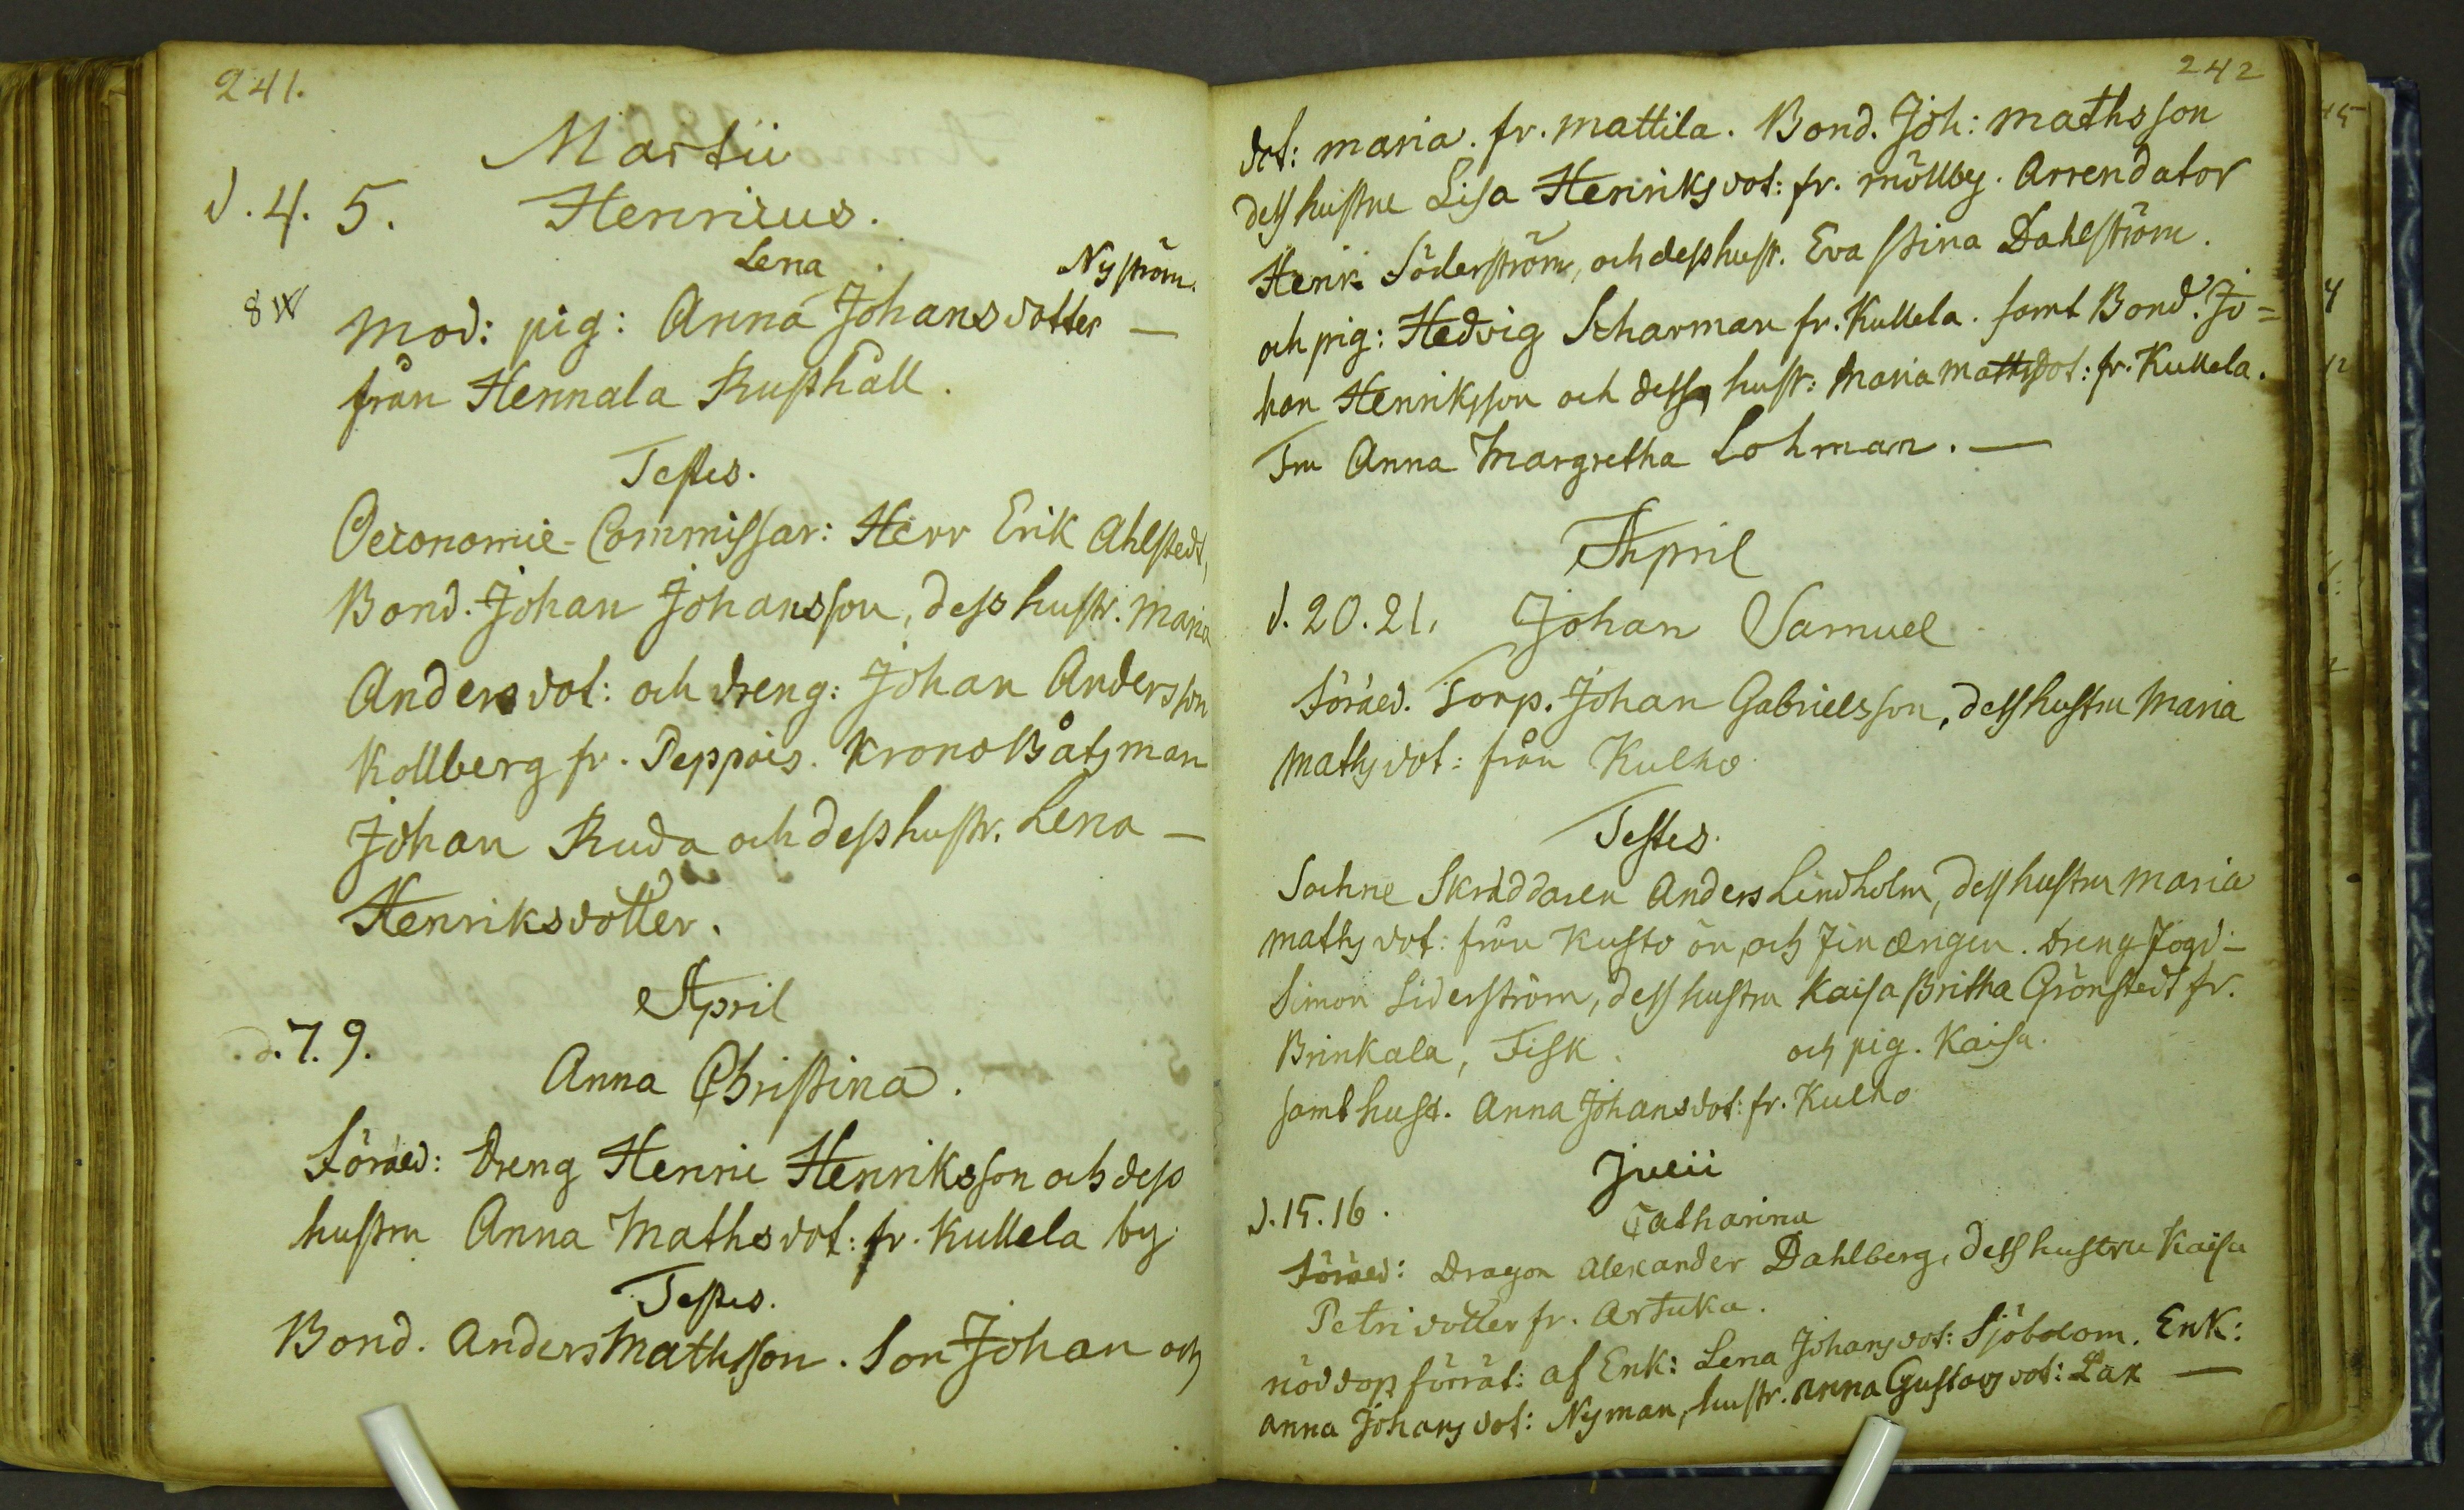 241.
Martii
d. 4. 5. Henricus.
Lena Nyström.
8 W Mod: pig: Anna Johansdotter —
från Hennala Rusthåll.
Testes.
Oeconomie-Commissar: Herr Erik Ahlstedt,
Bond. Johan Johansson, dess hustr. Maria
Andersdot: och dreng: Johan Andersson
Kollberg fr. Peppois. Krono Båtsman
Johan Ruda och dess hustr. Lena —
Henriksdotter.
April
d. 7. 9.
Anna Christina.
Föräld: Dreng Henric Henriksson och dess
hustru Anna Mathsdot: fr. Kullela by
Testes.
Bond. Anders Mathsson. Son Johan och
242
dot: Maria. fr. Mattila. Bond. Joh: Mathsson
dess hustru Lisa Henriksdot: fr. Möllby. Arrendator
Henr. Söderström, och dess hust. Eva Stina Dahlström.
och pig: Hedvig Scharman fr. Kullela. samt Bond. Jo=
han Henriksson och dess hust: Maria Mathsdot: fr. Kullela.
Anna Margretha Lohman. —
April
d. 20. 21. Johan Samuel
Föräld. Torp. Johan Gabrielsson, dess hustru Maria
Mathsdot: från Kulho
Testes.
Sochne Skräddaren Anders Lindholm, dess hustru Maria
Mathsdot: från Kusto ön, och Dreng
Simon Liderström, dess hustru Kaisa Britha Grönstedt fr.
Brinkala, Fisk. och pig. Kaisa.
samt hust. Anna Johansdot: fr. Kulho
Julii
d. 15. 16. Catharina
Föräld: Dragon Alexander Dahlberg, dess hustru Kaisa
Petri dotter fr. Artuka.
nöddop förrät: af Enk: Lena Johansdot: Sjöblom. Enk:
Anna Johansdot: Nyman, hustr. Anna Gustavsdot: Lax —